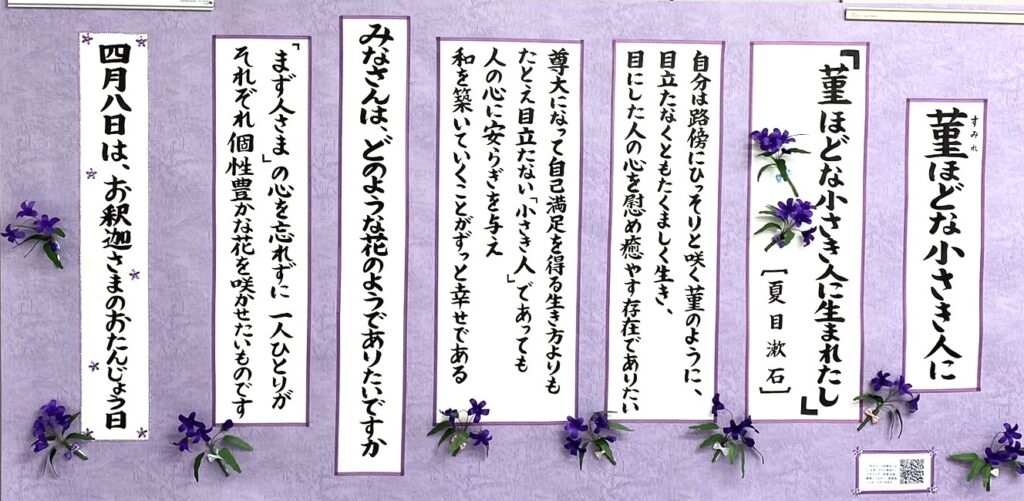 菫ほどな小さき人に
すみれ
「菫ほどな小さき人に生まれたし」
[夏目漱石]
自分は路傍にひっそりと咲く菫のように、
目立たなくともたくましく生き、
目にした人の心を慰め癒やす存在でありたい
尊大になって自己満足を得る生き方よりも
たとえ目立たない「小さき人」であっても
人の心に安らぎを与え
和を築いていくことがずっと幸せである
みなさんは、どのような花のようでありたいですか
「まず人さま」の心を忘れずに 一人ひとりが
それぞれ個性豊かな花を咲かせたいものです
四月八日は、お釈迦さまのおたんじょう日